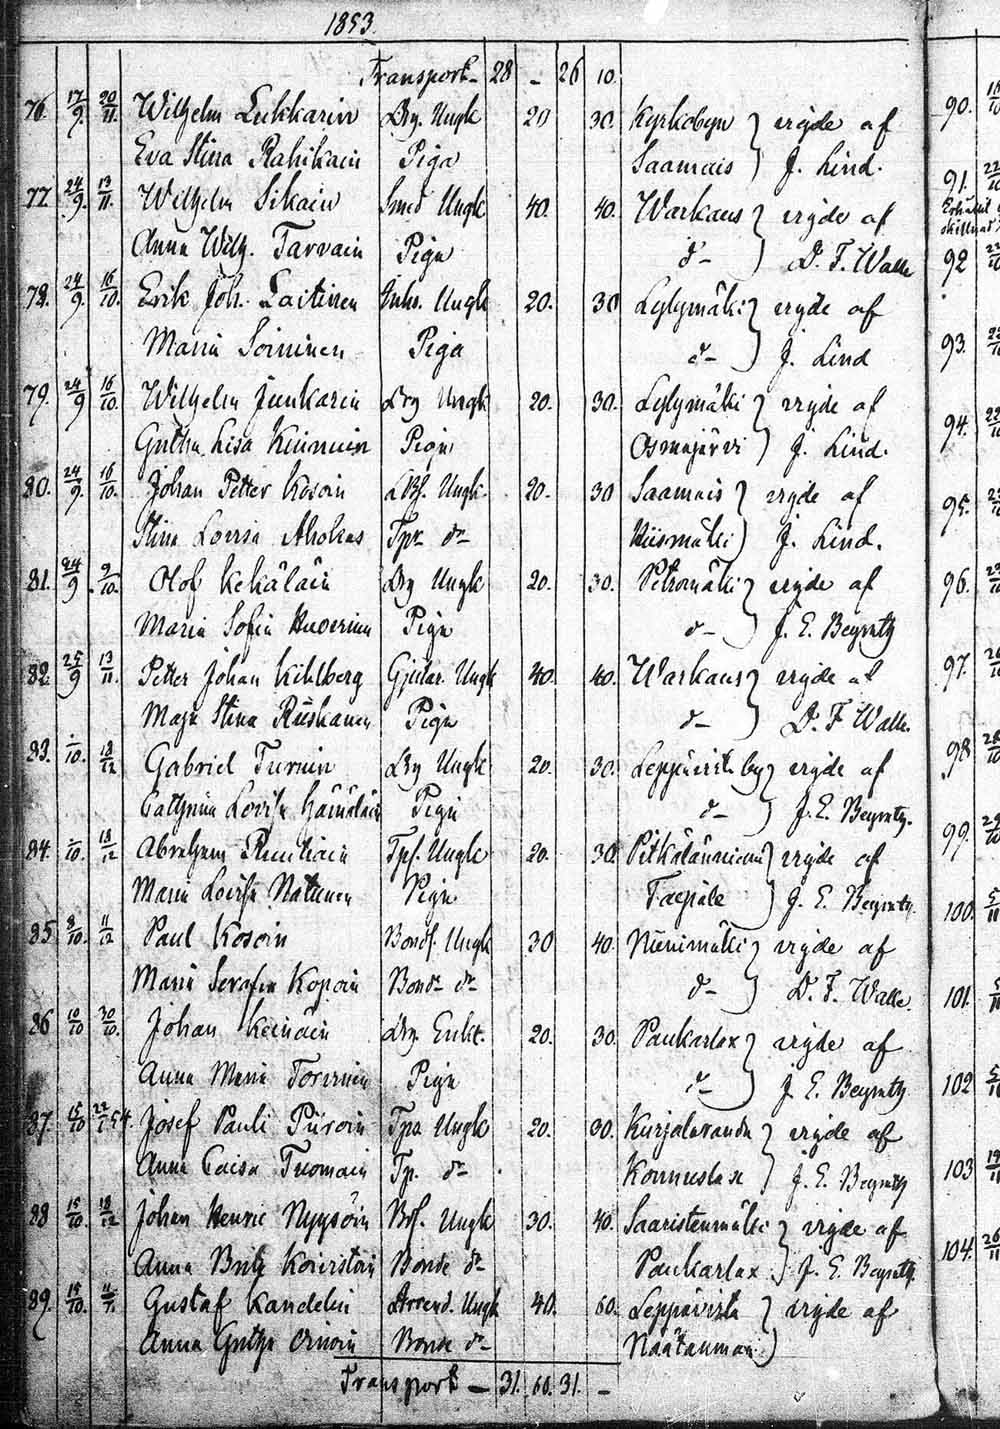 1853.
Transport- 28 - 26 10.
76. 17/9. 20/11. Wilhelm Lukkarin Drg. Ungk 20 30. Kyrkobyn } vigde af
Eva Stina Rahikain Piga Saamais } J. Lind.
77. 24/9. 13/11. Wilhelm Sikain Smed Ungk 40. 40. Warkaus } vigde af
Anna Wilh. Tarvain Piga d- } D. F. Walle
78. 24/9. 16/10. Erik Joh. Laitinen Inhs. Ungk 20. 30 Lylymäki } vigde af
Maria Soininen Piga d- } J. Lind
79. 24/9 16/10. Wilhelm Junkarin Drg Ungk 20. 30. Lylymäki } vigde af
Gretha Lisa Kinnuin Piga Osmajärvi } J. Lind.
80. 24/9. 16/10. Johan Petter Kosoin Ungk. 20. 30 Saamais } vigde af
Stina Lovisa Ahokas Tpr dr Kiismäki } J. Lind.
81. 24/9 9/10. Olof Kekäläin Drg Ungk 20. 30. Petromäki } vigde af
Maria Sofia Huverinn Piga d- } J. E. Begrutz
82. 25/9 13/11. Petter Johan Kihlberg Gjutar. Ungk 40. 40. Warkaus } vigde af
Maja Stina Ruskanen Piga d- } D. F. Walle.
83. /10. 18/12 Gabriel Turuin Drg Ungk 20. 30. Leppävirta by } vigde af
Cathrina Lovisa Hämäläin Piga d- } J. E. Begrutz.
84. /10. 18/12 Abraham Tps. Ungk 20. 30. Pitkälänniemi } vigde af
Maria Lovisa Natunen Piga Taepale } J. E. Begrutz.
85. 8/10. 11/12 Paul Kosoin Bonds. Ungk 30 40. Niinimäki } vigde af
Maria Serafia Kopoin Bonde dr d- } D. F. Walle.
86 10/10 30/10. Johan Keinäin Drg. Enkl. 20. 30. Paukarlax } vigde af
Anna Maria Torvinin Piga d- } J. E. Begrutz
87. 15/10 22/1 54. Josef Pauli Piiroin Tps Ungk 20. 30. Kurjalaranda } vigde af
Anna Caisa Tuomain Tp. dr Konnuslax } J. E. Begrutz
88 15/10. 18/12 Johan Henric Nyysöin Bds. Ungk 30. 40. Saaristenmäki } vigde af
Anna Brita Koivistoin Bonde dr Paukarlax } J. E. Begrutz.
89. 15/10. Gustaf Kandelin Arrend. Ungk 40. 60. Leppävirta } vigde af
Anna Gretha Oinoin Bonde dr Näätänmaa }
Transport - 31. 60. 31. -
90.
91. 22/10
92
93.
94.
95.
96.
97.
98
99.
100. 5/11
101.
102
103
104. 26/11